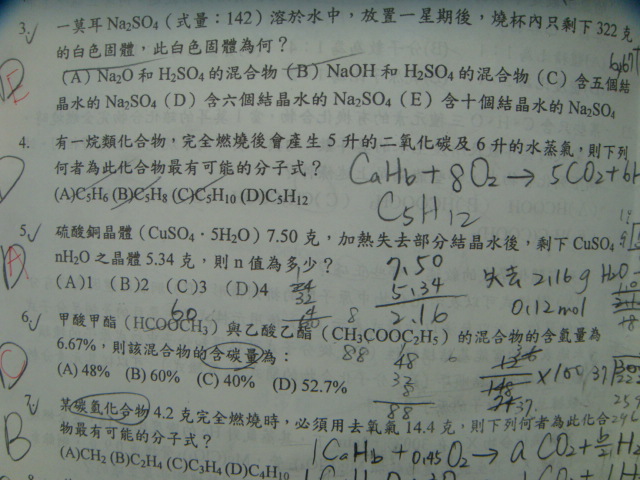 3. 一莫耳 Na2SO4（式量：142）溶於水中，放置一星期後，燒杯內只剩下 322 克
的白色固體，此白色固體為何？
(A) Na2O 和 H2SO4 的混合物 (B) NaOH 和 H2SO4 的混合物 (C) 含五個結
晶水的 Na2SO4 (D) 含六個結晶水的 Na2SO4 (E) 含十個結晶水的 Na2SO4
E
4. 有一烷類化合物，完全燃燒後會產生 5 升的二氧化碳及 6 升的水蒸氣，則下列
何者為此化合物最有可能的分子式？
CaHb + 8O2 → 5CO2 + 6H
(A)C5H6 (B)C5H8 (C)C5H10 (D)C5H12
C5H12
D
5. 硫酸銅晶體（CuSO4．5H2O）7.50 克，加熱失去部分結晶水後，剩下 CuSO4．
nH2O 之晶體 5.34 克，則 n 值為多少？
(A)1 (B)2 (C)3 (D)4
A
7.50
5.34
2.16
失去 2.16g H2O
0.12mol
6. 甲酸甲酯（HCOOCH3）與乙酸乙酯（CH3COOC2H5）的混合物的含氫量為
60
88
6.67%，則該混合物的含碳量為：
(A) 48% (B) 60% (C) 40% (D) 52.7%
C
48
32
8
88
×100
7. 某碳氫化合物 4.2 克完全燃燒時，必須用去氧氣 14.4 克，則下列何者為此化合
物最有可能的分子式？
(A)CH2 (B)C2H4 (C)C3H4 (D)C4H10
B
1CaHb + 0.45O2 → a CO2 + b/2 H2